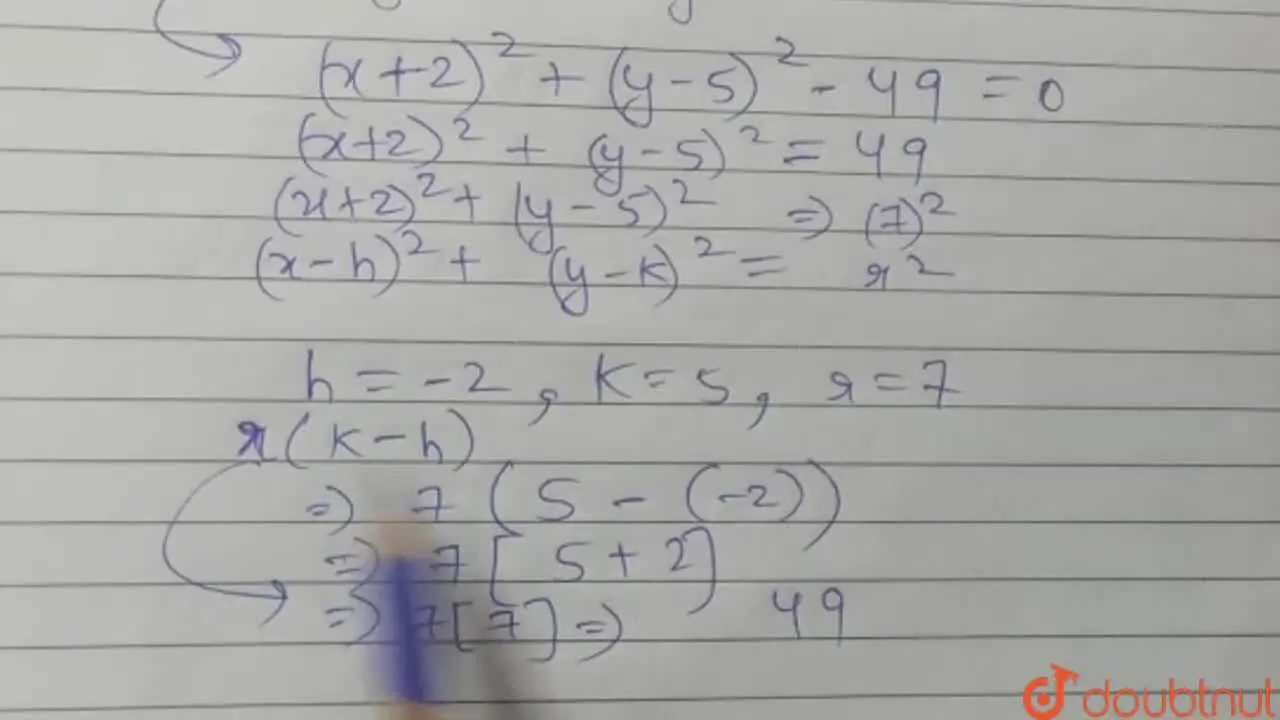 (x+2)² + (y-5)² - 49 = 0
(x+2)² + (y-5)² = 49
(x+2)² + (y-5)² => (7)²
(x-h)² + (y-k)² = r²
h = -2, k = 5, r = 7
r(k-h)
=> 7 (5 - (-2))
=> 7 [5+2]
=> 7[7] => 49
doubtnut